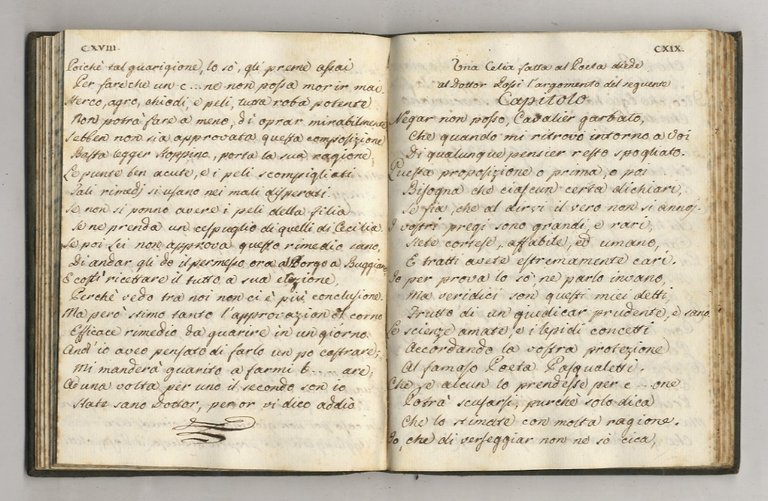 CXVIII.
Poichè tal guarigione, lo sò, gli preme assai
Per fare che un c... ne non possa morir mai
Sterco, agro, chiodi, e peli, tutta roba potente
Non potrà fare a meno, di oprar mirabilmente
Sebben non sia approvata questa composizione
Basta legger Stoppino, porta la sua ragione;
Le punte ben acute, e i peli scompigliati
Tali rimedj si usano nei mali disperati
Se non si ponno avere i peli della
Se ne prenda un cespuglio di quelli di Cecilia
Se poi Lei non approva questo rimedio sano,
Di andar gli do il permesso ora a Borgo a Buggiano
E così ricettare il tutto a sua elezione
Perchè vedo tra noi non ci è più conclusione.
Ma però stimo tanto l'approvazion del corno
Efficace rimedio da guarire in un giorno.
Anch'io aveo pensato di farlo un po castrare;
Mi manderà guarito a farmi b... are;
Ad una volta per uno il secondo son io
State sano Dottor, per or vi dico addio
CXIX.
Una Celia fatta al Poeta diede
al Dottor Rossi l'argomento del seguente
Capitolo
Negar non posso, Cavalier garbato,
Che quando mi ritrovo intorno a Voi
Di qualunque pensier resto spogliato.
Questa proposizione o prima, o poi
Bisogna che ciascun certa dichiari,
Se sia, che al dirvi il vero non si annoj.
I vostri pregi son grandi, e rari,
Siete cortese, affabile, ed umano,
E tratti avete estremamente cari.
Io per prova lo sò, ne parlo invano,
Ma veridici son questi miei detti,
Frutto di un giudicar prudente, e sano
Le scienze amate, e i lepidi concetti
Accordando la vostra protezione
Al famoso Poeta Pasqualetti.
Che, se alcun lo prendesse per c... one
Potrà scusarsi, purchè solo dica
Che lo stimate con molta ragione.
Io, che di verseggiar non ne sò cica,